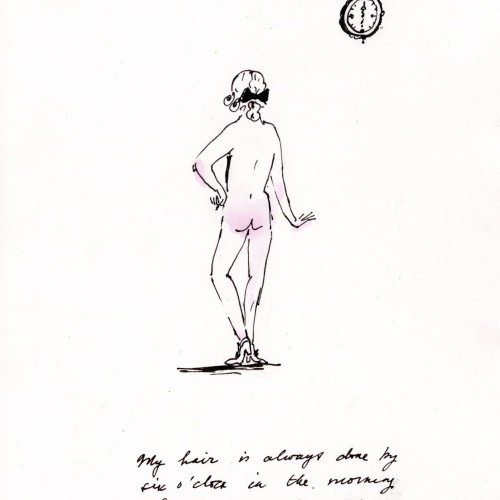 My hair is always done by
six o'clock in the morning